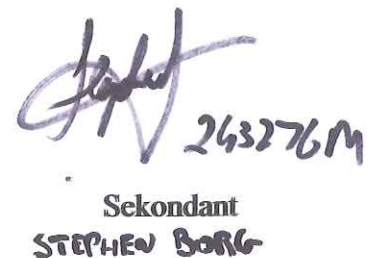 243276M
Sekondant
STEPHEN BORG